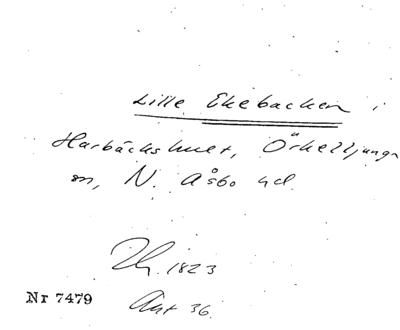 Lille Ekebacken i
Harbäckshult, Örkelljunga
sn, N. Åsbo hd.
1823
Nr 7479
Akt 36.